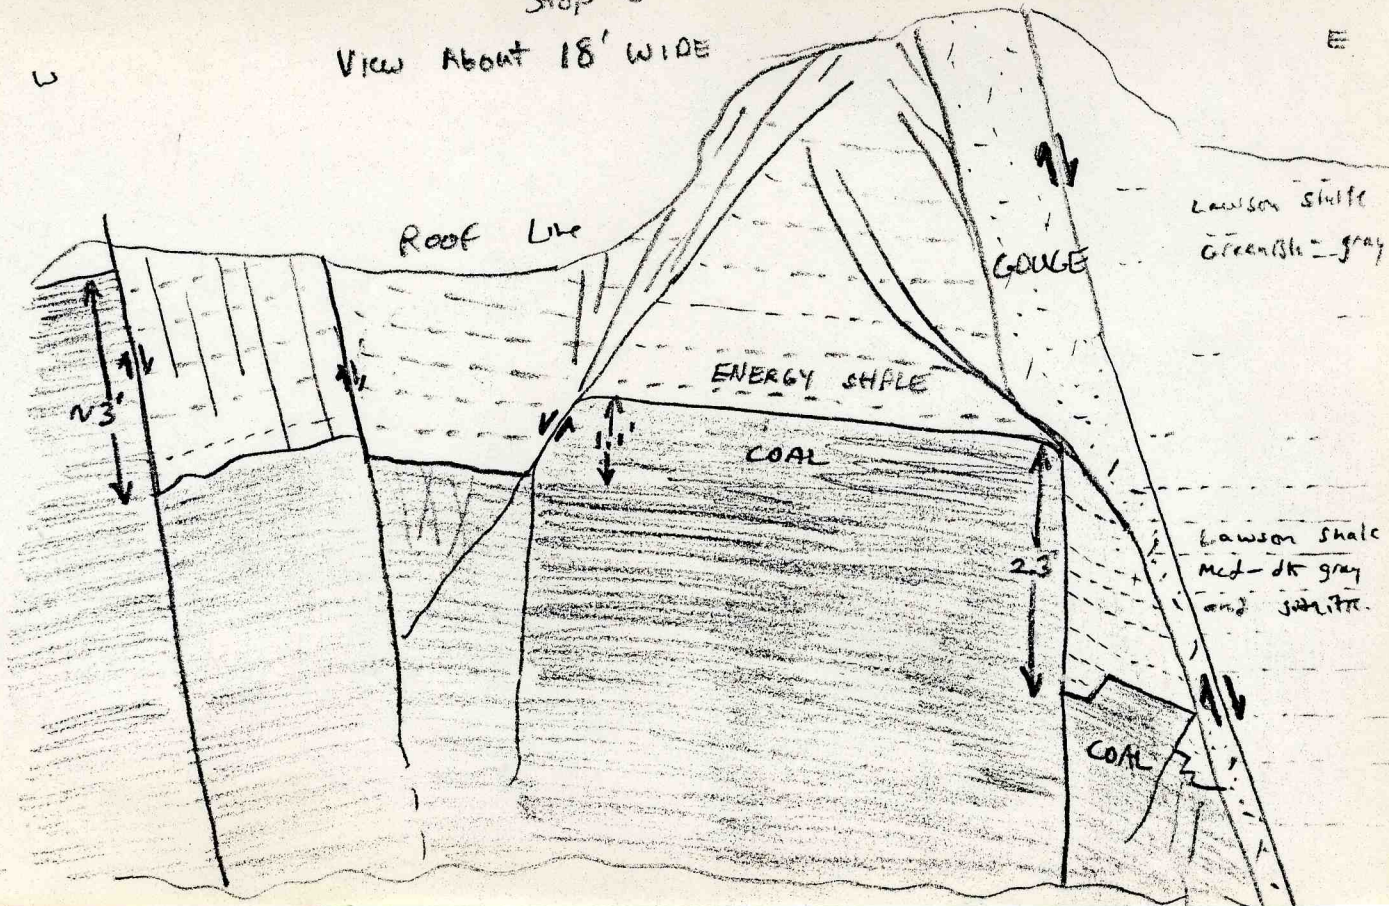 Stop
View About 18' WIDE
W
E
Lawson Shale
Greenish-gray
Roof Line
GOUGE
~3'
ENERGY SHALE
1.1'
COAL
2.3'
Lawson Shale
Med-dk gray
and
COAL